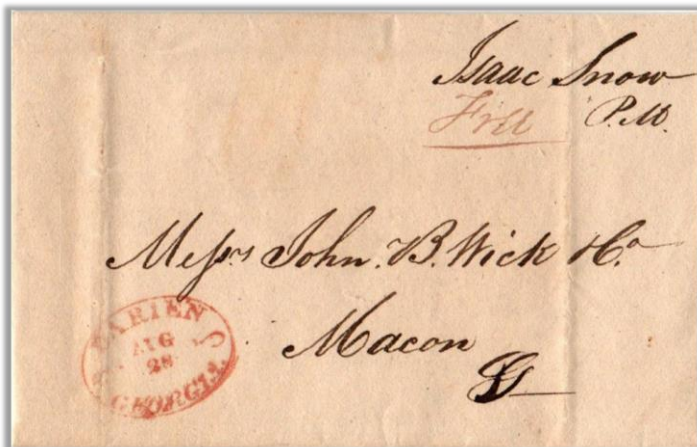 Isaac Snow
Free P.M.
Messrs John. B. Wick & Co.
Macon
Ga
DARIEN
AUG
28
GEORGIA.